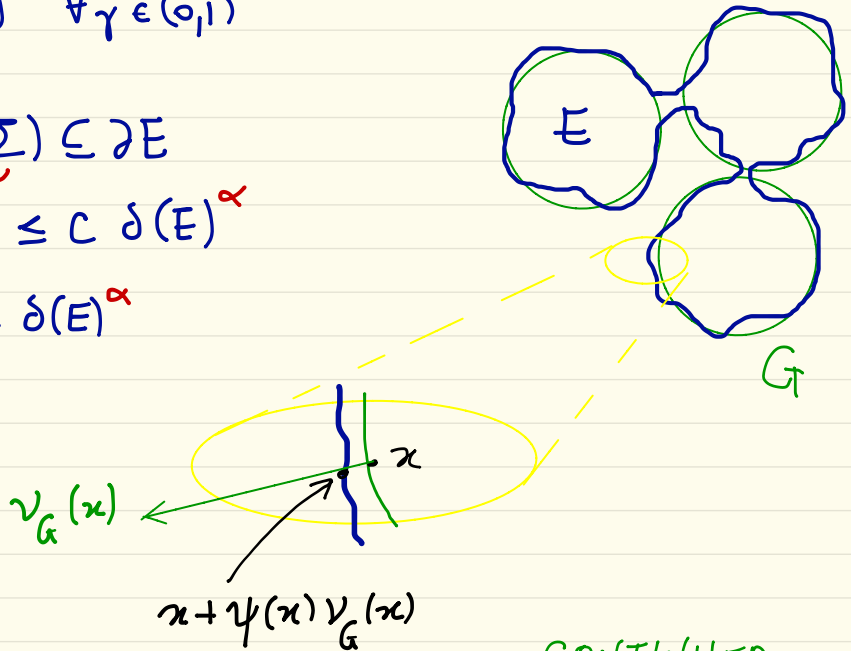 ∀γ ∈ (0,1)
Σ) ⊆ ∂E
≤ C δ(E)^α
δ(E)^α
E
G
x
ν_G(x)
x + ψ(x) ν_G(x)